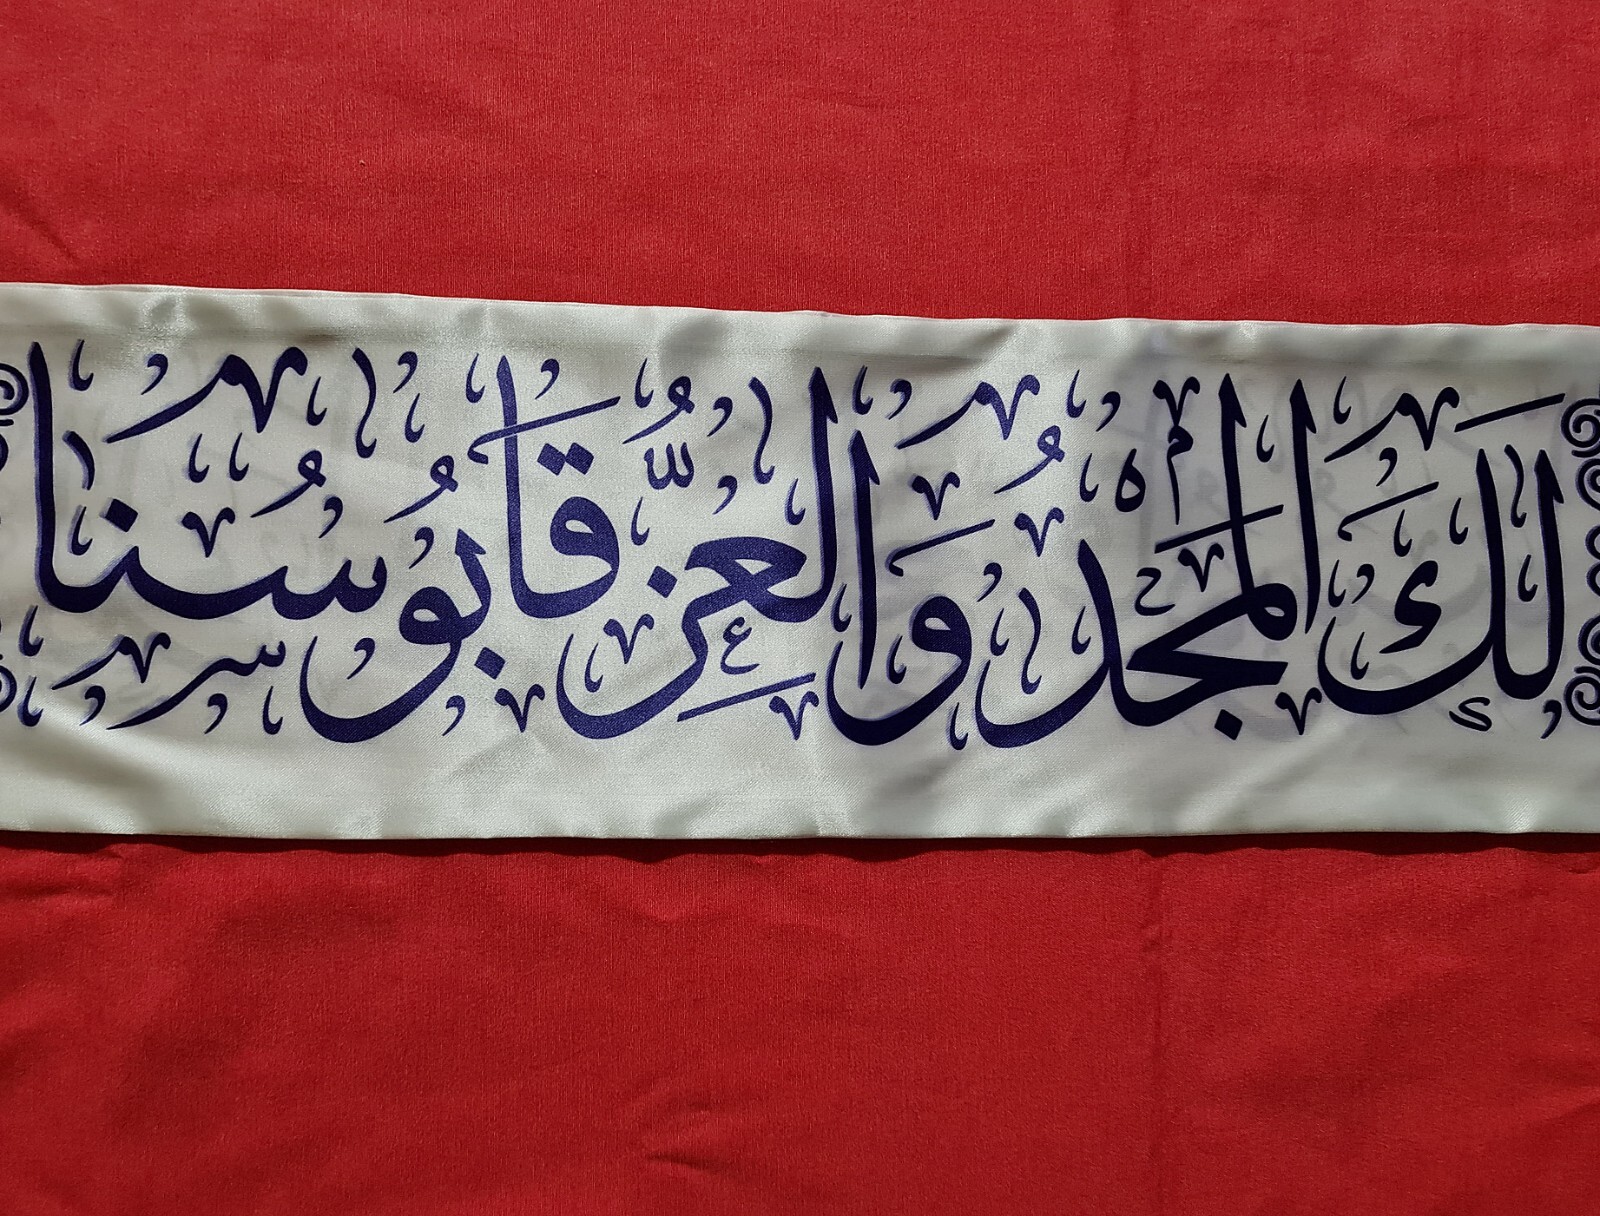 لَكَ المَجْدُ وَالعِزُّ قَابُوسُنَا